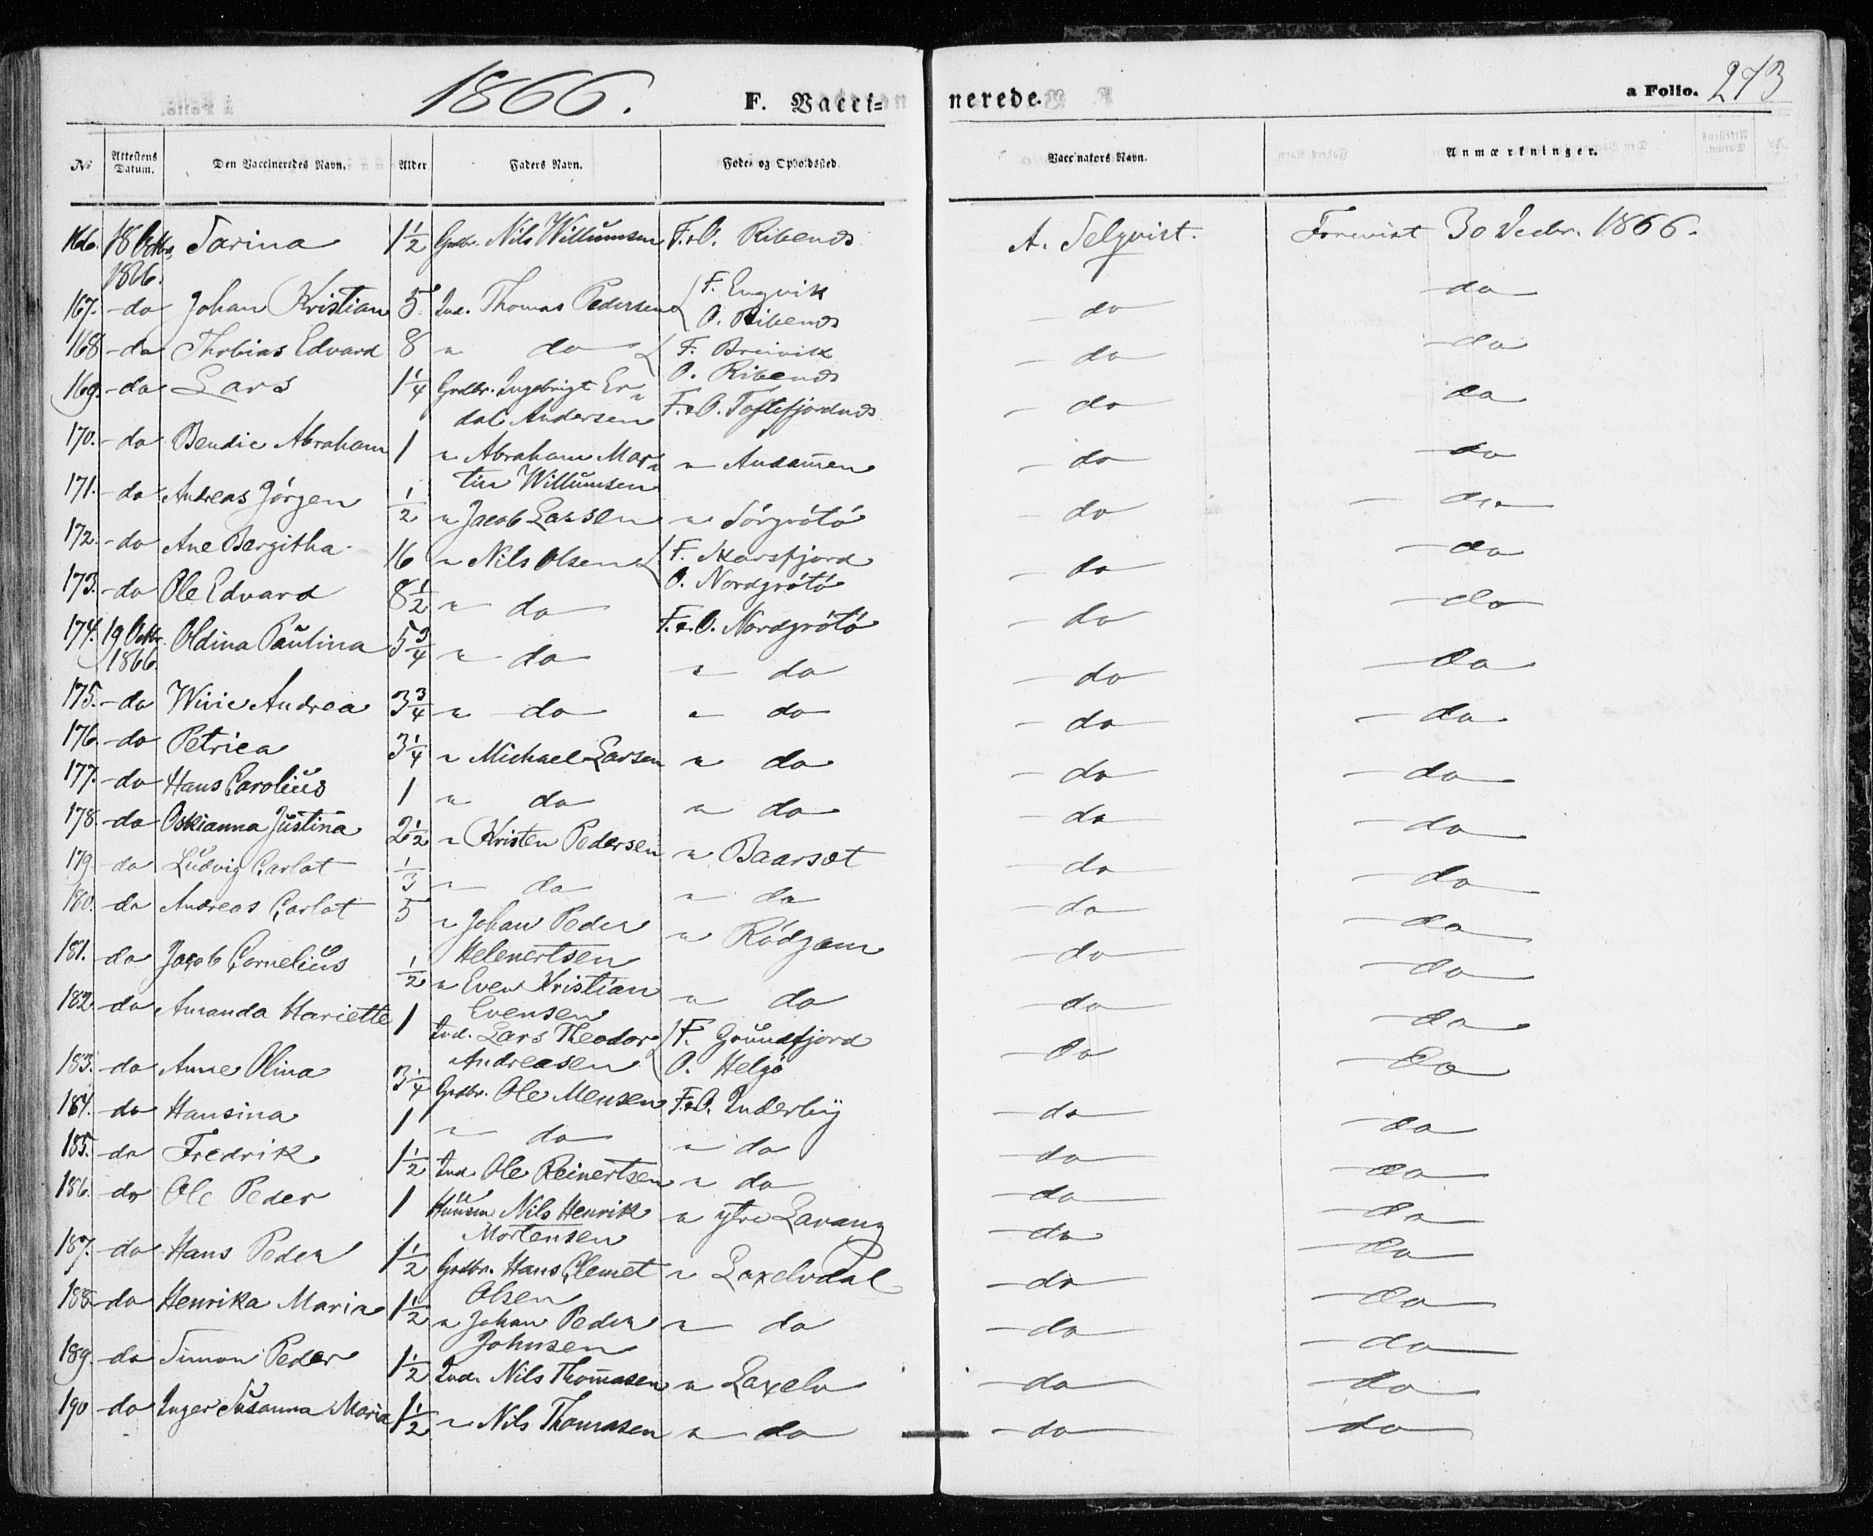 1866. F. Vacci= nerede. a Folio. 273
No Attestens Datum. Den Vaccineredes Navn. Alder Faders Navn. Føde- og Opholdssted. Vaccinators Navn. Anmærkninger.
166. 18 Octbr. 1866. Sarina 1½ Grdbr. Nils Willumsen F.&O. Ribends A. Selqvist. Forevist 30 Decbr. 1866.
167. - do Johan Kristian 5 Ind. Thomas Pedersen F. Engvik - do - do
O. Ribends
168 - do Thobias Edvard 8 " do F. Breivik - do - do
O. Ribends
169. - do Lars 1¼ Grdbr. Ingebrigt Er= F.&O. Toftefjordnds - do do
dal Andersen
170. - do Bendic Abraham 1 " Abraham Mar= " Andamen - do - do
tin Willumsen
171. - do Andreas Jörgen ½ " Jacob Larsen " Sörgrötö - do - do
172. - do Ane Bergitha 16 " Nils Olsen F. - do - do
O. Nordgrötö
173. - do Ole Edvard 8½ " do F.&O. Nordgrötö - do - do
174. 19 Octbr. 1866. Oldina Paulina 5¾ " do " do - do - do
175. - do Wivie Andrea 3¾ " do " do - do - do
176. - do Petrica 3¼ " Michael Larsen " do - do - do
177. - do Hans Carolius 1 " do " do - do - do
178. - do Oskianna Justina 2½ " Kristen Pedersen " Baarset - do - do
179. - do Ludvig Carlot ⅓ " do " do - do - do
180. - do Andreas Carlot 5 " Johan Peder " Rödgam - do - do
Helenertsen
181. - do Jacob Cornelius ½ " Even Kristian " do - do - do
Evensen
182. - do Amanda Hariette 1 Ind. Lars Theodor F. Grundfjord - do - do
Andreasen O. Helgö
183. - do Anne Olina 3¼ Grdbr. Ole Mensen F.&O. Inderby - do - do
184. - do Hansina 1 " do " do - do - do
185. - do Fredrik 1½ Ind. Ole Reinertsen " do - do - do
186. - do Ole Peder 1 Huusm. Nils Henrik " ytre Lavang - do - do
Mortensen
187. - do Hans Peder 1½ Grdbr. Hans Clemet " Laxelvdal - do - do
Olsen
188 - do Henrika Maria 1½ " Johan Peder " do - do - do
Johnsen
189. - do Simon Peder 1½ Ind. Nils Thomasen " Laxelv - do - do
190 - do Inger Susanna Maria 1½ " Nils Thomasen " do - do - do